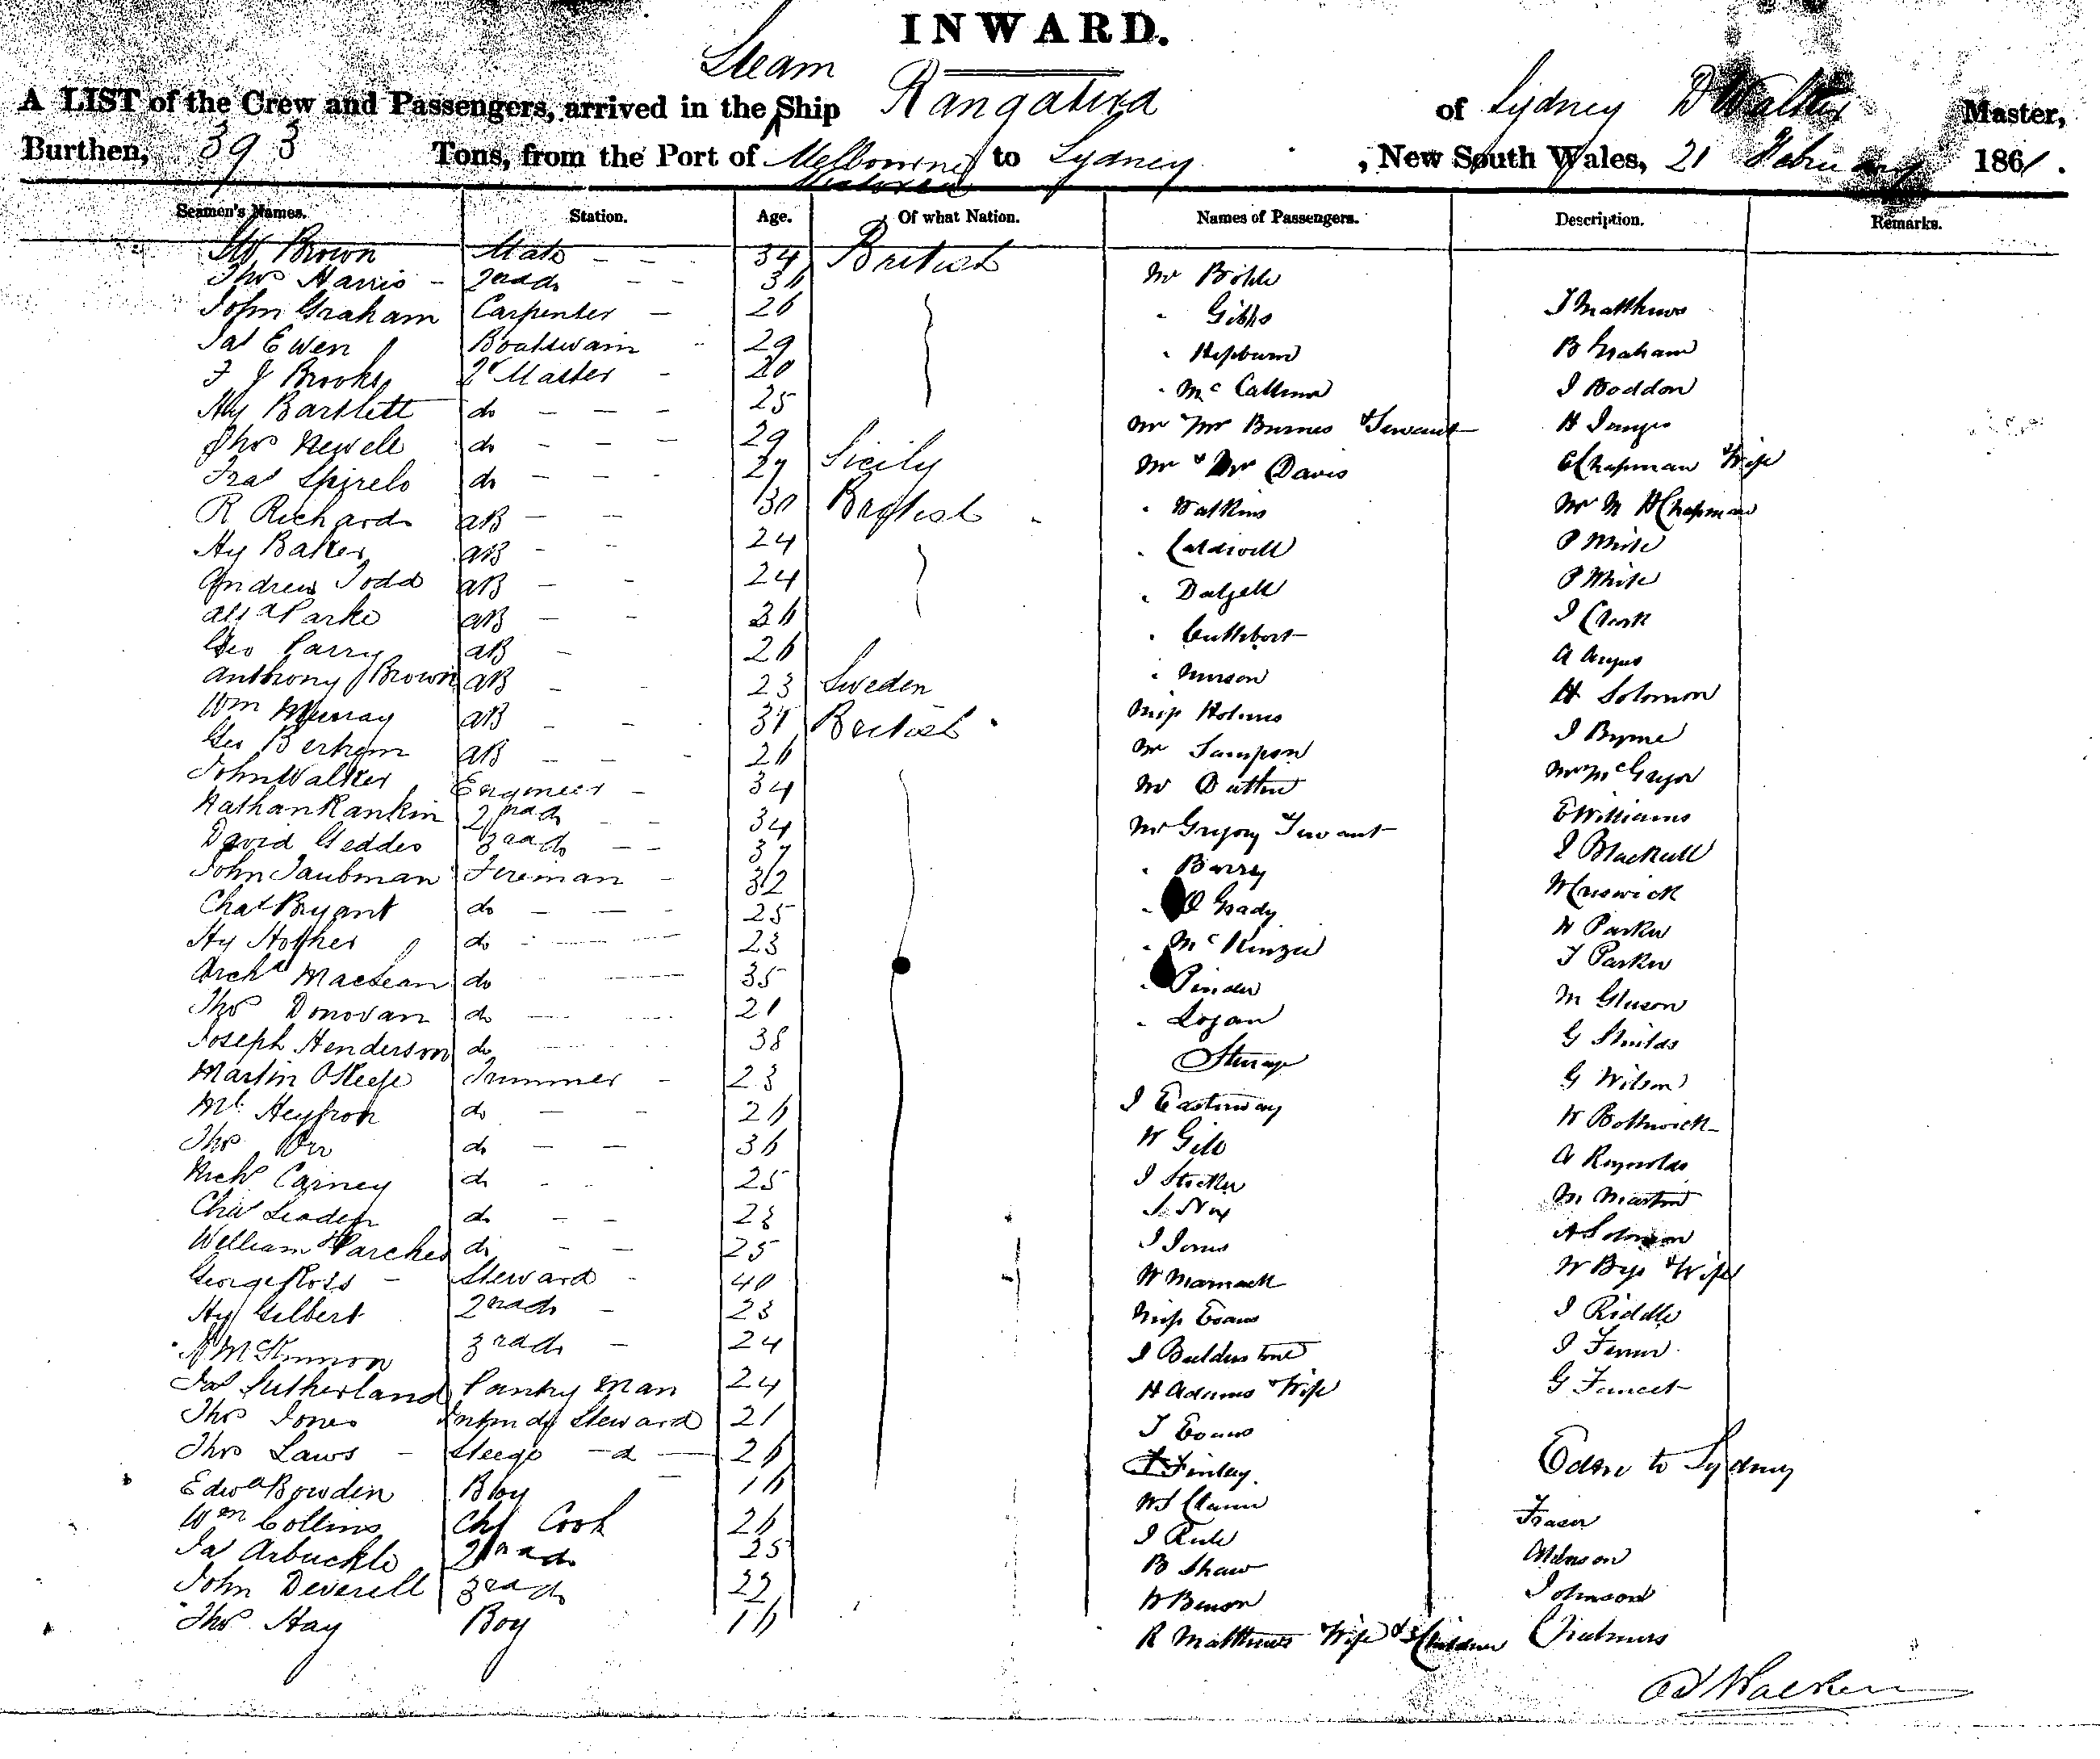 INWARD.
Steam
A LIST of the Crew and Passengers, arrived in the Ship Rangatira of Sydney D Walker Master,
Burthen, 393 Tons, from the Port of Melbourne to Sydney, New South Wales, 21 February 1861.
Victoria
Seamen's Names. Station. Age. Of what Nation. Names of Passengers. Description. Remarks.
Brown Mate 34 British
Thos Harris 2nd do 36 Mr
John Graham Carpenter 26 " Gibbs J Matthews
Jas Ewen Boatswain 29 " Hepburn B Graham
F J Brooks 2r Master 20 " McCallum J Hoddon
Hy Bartlett do 25 Mr Mrs Burnes & Servant H
Thos Newell do 29 Mr & Mrs Davis C Chapman & Wife
Fras Spirelo do 27 Sicily " Watkins Mr H Chapman
R Richards AB 30 British " Caldwell P White
Hy Baker AB 24 " Dalzell P White
Andrew Todd AB 24 " Cuthbert J Clark
Alexr Parke AB 36 " A Angus
Geo Parry AB 26 Miss Holmes H Solomon
Anthony Brown AB 23 Sweden Mr Sampson J Byrne
Wm Murray AB 31 British Mr Dutton Mrs McGregor
Geo Bertram AB 26 Mr Gregory Servant E Williams
John Walker Engineer 34 " Barry J Blackall
Nathan Rankin 2nd do 34 " O Grady
David Geddes 3rd do 37 " McKinzie W Parker
John Taubman Fireman 32 " Pinder T Parker
Chas Bryant do 25 " Logan M Gleeson
Hy Hother do 23 Steerage G Shields
Archd MacLean do 35 J Easterway G Wilson
Thos Donovan do 21 W Gill W Bothwick
Joseph Henderson do 38 J A Reynolds
Martin O'Keefe Trimmer 23 J Nix M Martin
Ml Heyfron do 26 J Jones A Solomon
Thos Orr do 36 W Marnack W Bye & Wife
Michl Carney do 25 Miss Evans J Riddle
Chas Leaden do 23 J Balderstone J
William Parches do 25 H Adams & Wife G Faucet
George Ross Steward 40 T Evans
Hy Gilbert 2nd do 23 Finlay Eden to Sydney
A McKinnon 3rd do 24 W J Fraser
Jas Sutherland Pantry Man 24 J Rule
Thos Jones do Steward 21 B Shaw Johnson
Thos Laws Steege d 26 W Benson Chalmers
Edwd Bowden Boy 16 R Matthews Wife & 3 Children
Wm Collins Chf Cook 26
Jas Arbuckle 2nd do 25
John Deverell 3rd do 22
Thos Hay Boy 16
D Walker